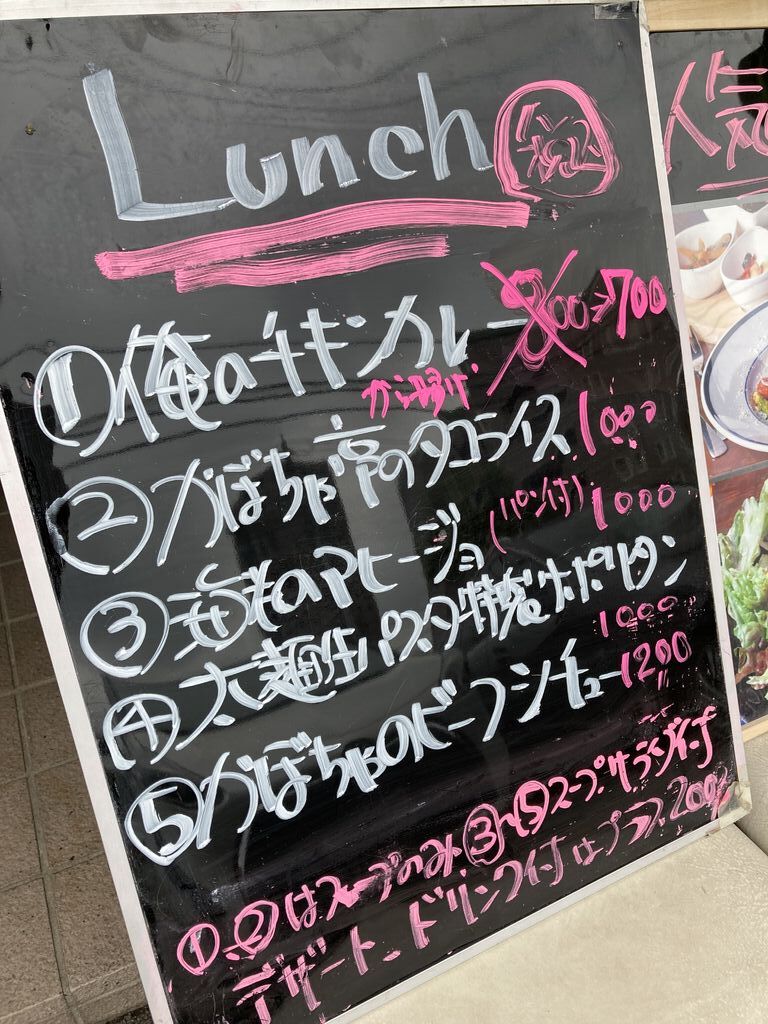 Lunch 税込
①俺のチキンカレー 800→700
ガーリック
②かぼちゃ亭のタコライス 1000
③若鶏のアヒージョ (パン付) 1000
④太麺生パスタ特製ナポリタン
1000
⑤かぼちゃのビーフシチュー 1200
①②はスープのみ ③〜⑤スープサラダ付
デザート、ドリンク付はプラス200
人気